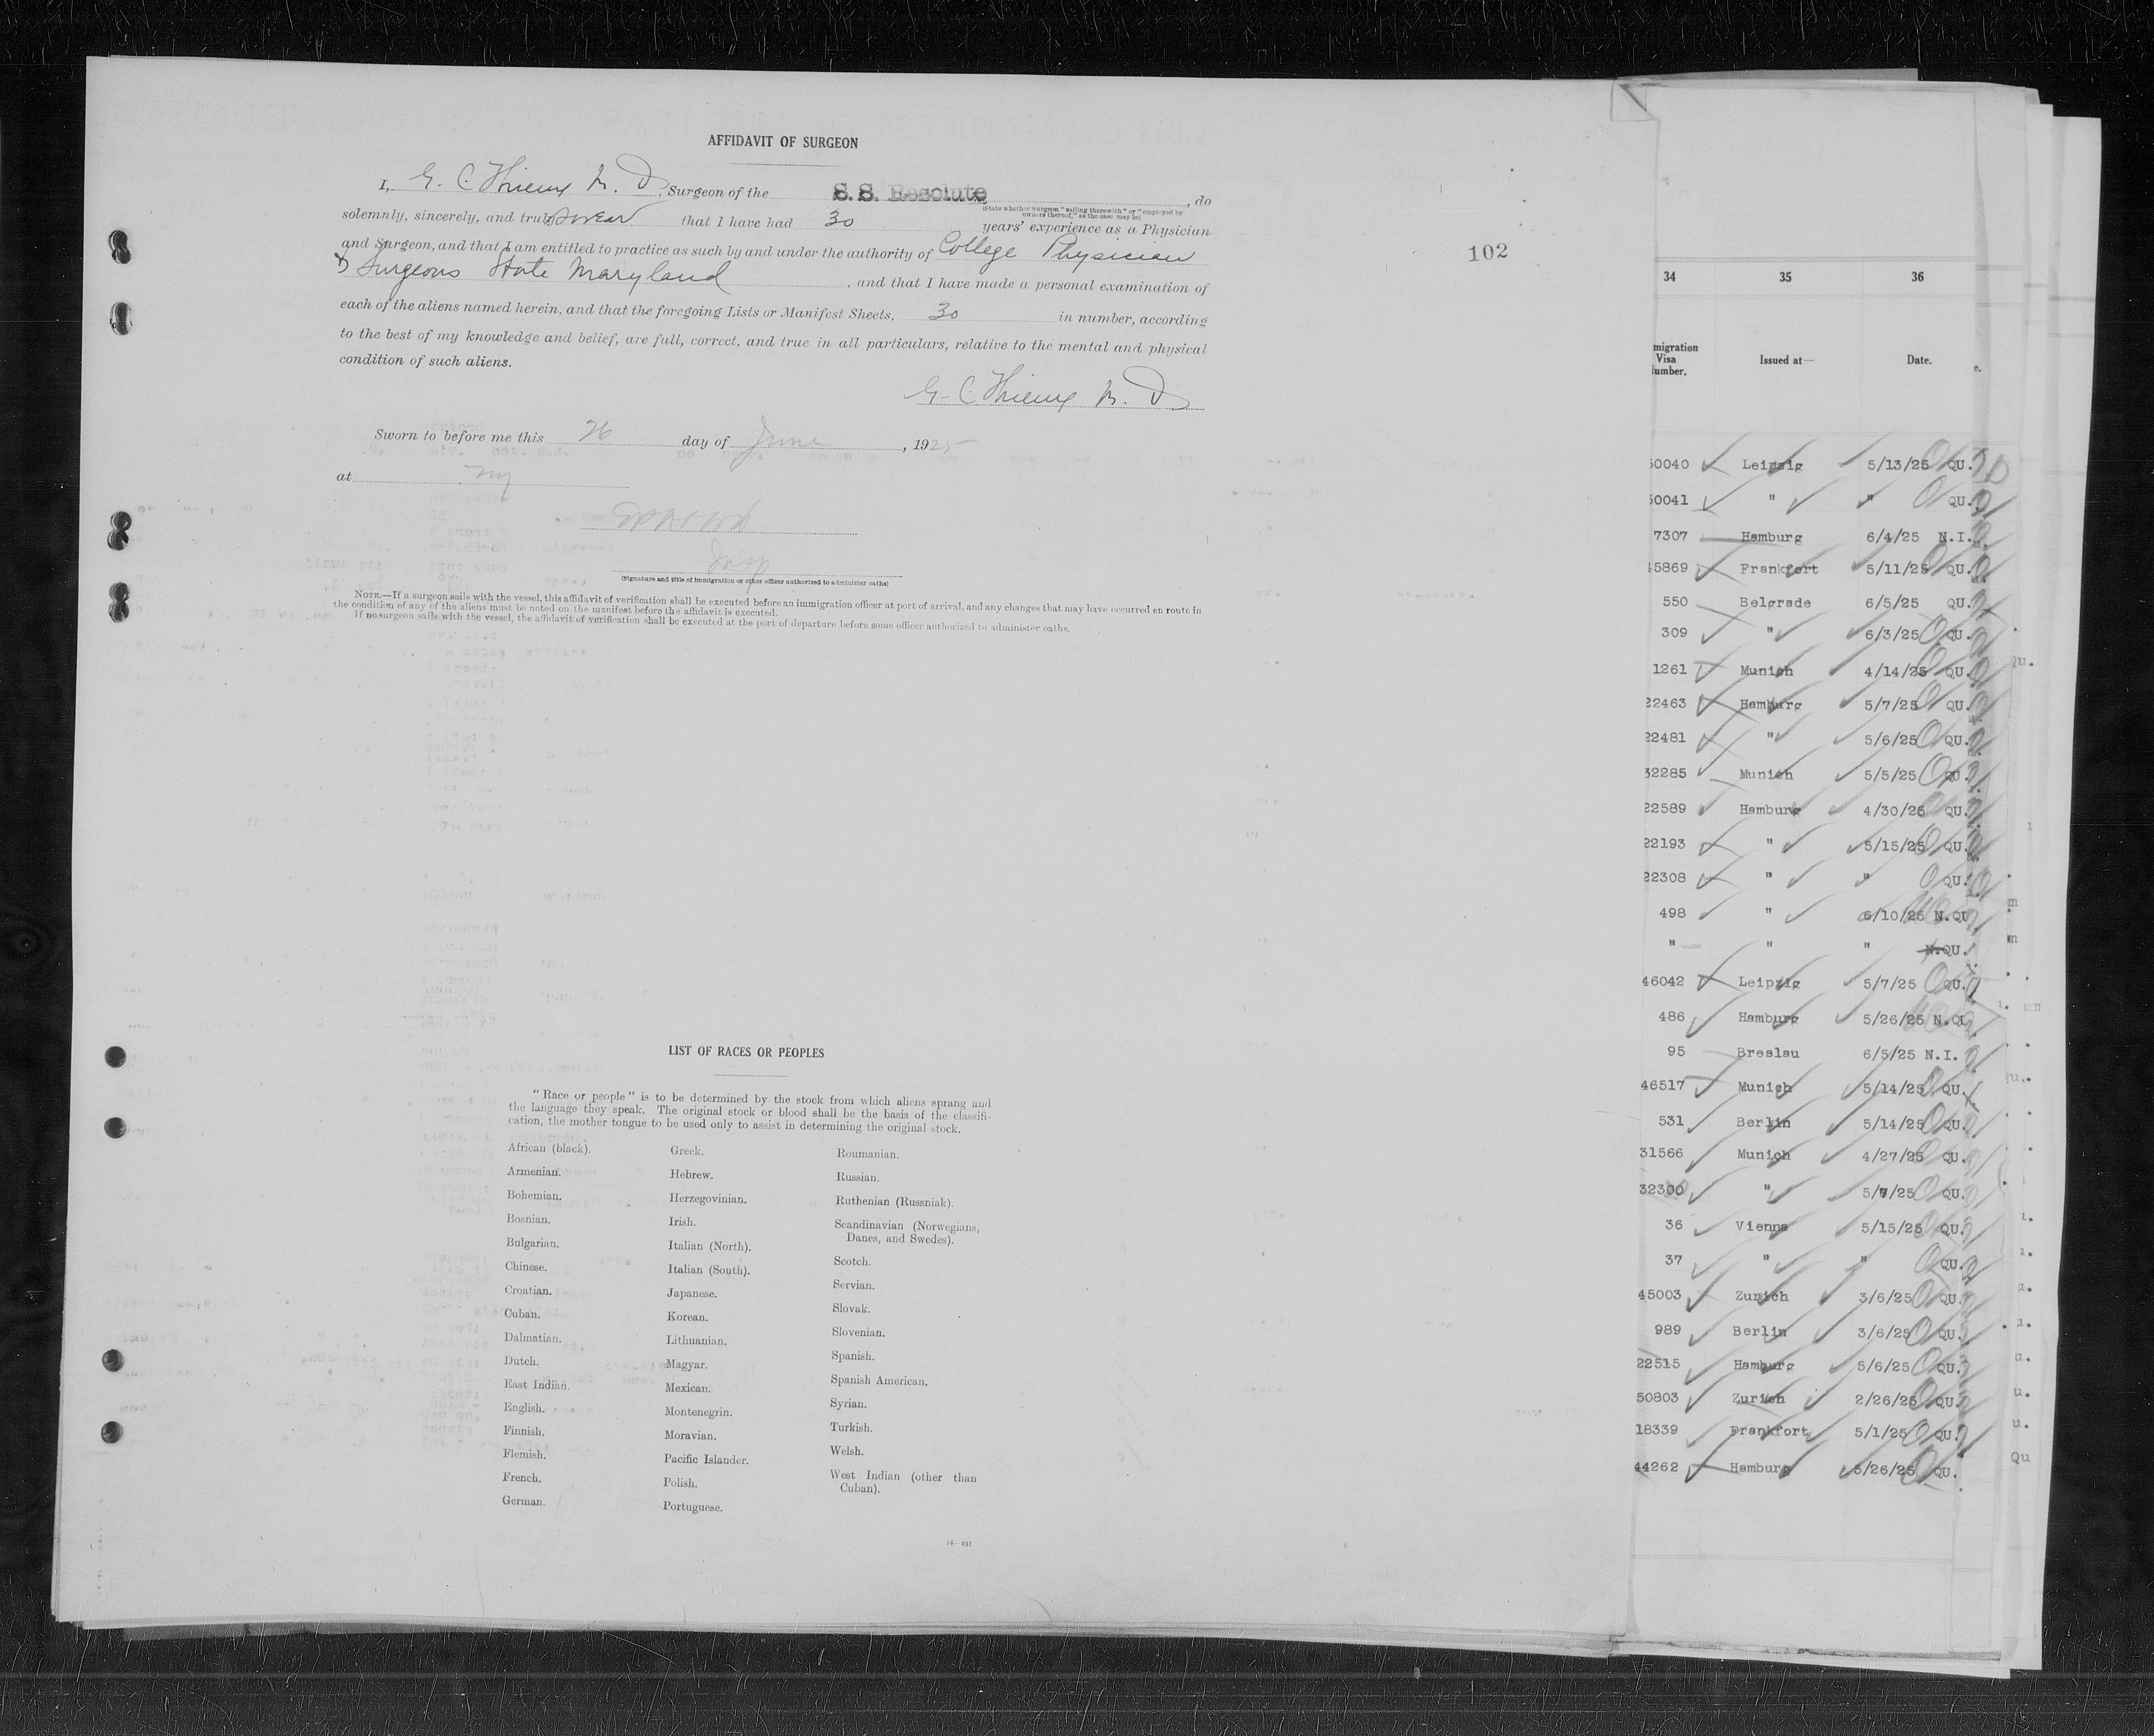 AFFIDAVIT OF SURGEON
I, G. C. M. D., Surgeon of the S. S. Resolute, do
(State whether Surgeon "sailing therewith" or "employed by owners thereof," as the case may be)
solemnly, sincerely, and truly swear that I have had 30 years' experience as a Physician
and Surgeon, and that I am entitled to practice as such by and under the authority of College Physician
& Surgeons State Maryland, and that I have made a personal examination of
each of the aliens named herein, and that the foregoing Lists or Manifest Sheets, 30 in number, according
to the best of my knowledge and belief, are full, correct, and true in all particulars, relative to the mental and physical
condition of such aliens.
G. C. M. D
Sworn to before me this 26 day of June, 1925
at NY
Insp
(Signature and title of immigration or other officer authorized to administer oaths)
NOTE.—If a surgeon sails with the vessel, this affidavit of verification shall be executed before an immigration officer at port of arrival, and any changes that may have occurred en route in
the condition of any of the aliens must be noted on the manifest before the affidavit is executed.
If no surgeon sails with the vessel, the affidavit of verification shall be executed at the port of departure before some officer authorized to administer oaths.
102
LIST OF RACES OR PEOPLES
"Race or people" is to be determined by the stock from which aliens sprang and
the language they speak. The original stock or blood shall be the basis of the classifi-
cation, the mother tongue to be used only to assist in determining the original stock.
African (black).
Armenian.
Bohemian.
Bosnian.
Bulgarian.
Chinese.
Croatian.
Cuban.
Dalmatian.
Dutch.
East Indian.
English.
Finnish.
Flemish.
French.
German.
Greek.
Hebrew.
Herzegovinian.
Irish.
Italian (North).
Italian (South).
Japanese.
Korean.
Lithuanian.
Magyar.
Mexican.
Montenegrin.
Moravian.
Pacific Islander.
Polish.
Portuguese.
Roumanian.
Russian.
Ruthenian (Russniak).
Scandinavian (Norwegians,
Danes, and Swedes).
Scotch.
Servian.
Slovak.
Slovenian.
Spanish.
Spanish American.
Syrian.
Turkish.
Welsh.
West Indian (other than
Cuban).
14—431
34 35 36
migration
Visa
umber. Issued at— Date.
50040 Leipzig 5/13/25 QU.
50041 " " QU.
7307 Hamburg 6/4/25 N.I.
15869 Frankfort 5/11/25 QU.
550 Belgrade 6/5/25 QU.
309 " 6/3/25 QU.
1261 Munich 4/14/25 QU.
22463 Hamburg 5/7/25 QU.
22481 " 5/6/25 QU.
32285 Munich 5/5/25 QU.
22589 Hamburg 4/30/25 QU.
22193 " 5/15/25 QU.
22308 " " QU.
498 " 6/10/25 N.QU
" " " N.QU.
46042 Leipzig 5/7/25 QU.
486 Hamburg 5/26/25 N.I.
95 Breslau 6/5/25 N.I.
46517 Munich 5/14/25 QU.
531 Berlin 5/14/25 QU.
31566 Munich 4/27/25 QU.
32300 " 5/7/25 QU.
36 Vienna 5/15/25 QU.
37 " " QU.
45003 Zurich 3/6/25 QU.
989 Berlin 3/6/25 QU.
22515 Hamburg 5/6/25 QU.
50803 Zurich 2/26/25 QU.
18339 Frankfort 5/1/25 QU.
44262 Hamburg 5/26/25 QU.